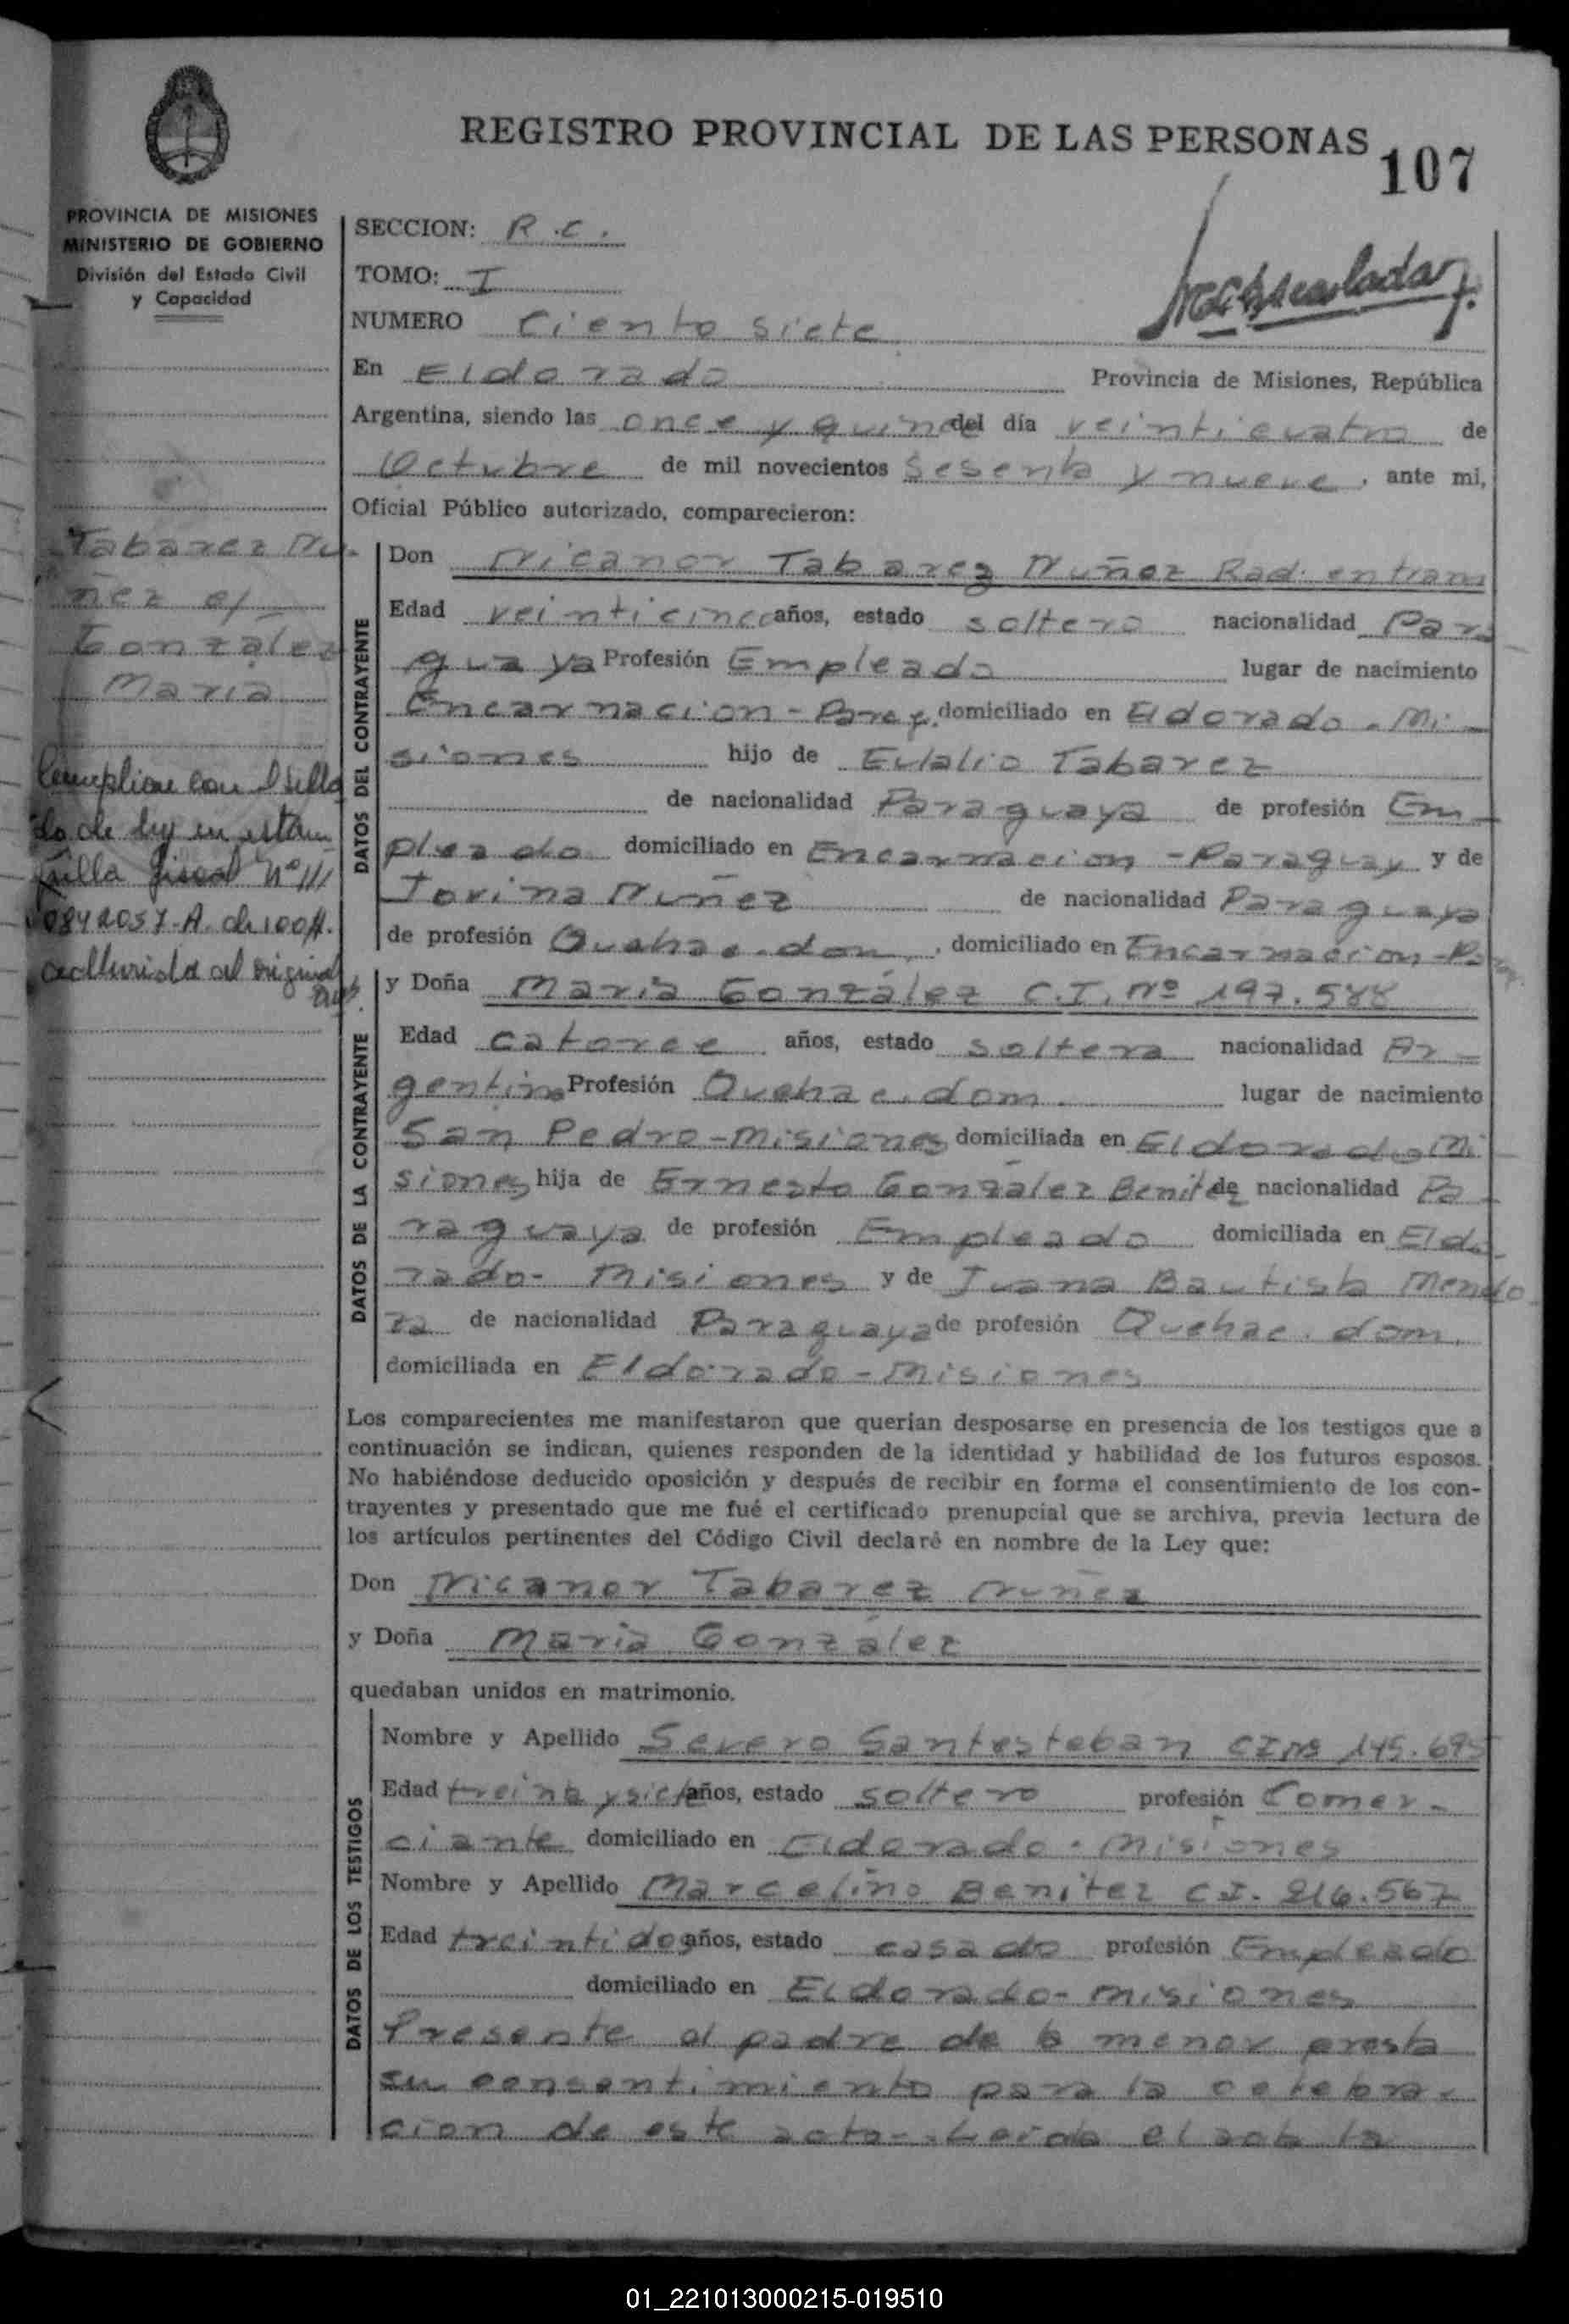 REGISTRO PROVINCIAL DE LAS PERSONAS
107
PROVINCIA DE MISIONES
MINISTERIO DE GOBIERNO
División del Estado Civil
y Capacidad
SECCION: R.C.
TOMO: I
NUMERO Ciento siete
En Eldorado Provincia de Misiones, República
Argentina, siendo las once y quince del día veinticuatro de
Octubre de mil novecientos Sesenta y nueve, ante mi,
Oficial Público autorizado, comparecieron:
Tabarez Nu-
ñez c/
González
Maria
Cumplióse con el sella
do de ley en estam
pilla fiscal Nº
0842057-A. de 100$.
adherida al original
DATOS DEL CONTRAYENTE
Don Nicanor Tabarez Nuñez Rad. en tram
Edad veinticinco años, estado soltero nacionalidad Para
guaya Profesión Empleado lugar de nacimiento
Encarnacion - Parag. domiciliado en Eldorado - Mi-
siones hijo de Eulalio Tabarez
de nacionalidad Paraguaya de profesión Em-
pleado domiciliado en Encarnacion - Paraguay y de
Jovina Nuñez de nacionalidad Paraguaya
de profesión Quehac. dom., domiciliado en Encarnacion - Parag.
DATOS DE LA CONTRAYENTE
y Doña Maria González C.I. Nº 197.588
Edad catorce años, estado soltera nacionalidad Ar-
gentina Profesión Quehac. dom. lugar de nacimiento
San Pedro - Misiones domiciliada en Eldorado Mi
siones hija de Ernesto González Benitez de nacionalidad Pa-
raguaya de profesión Empleado domiciliada en Eldo-
rado - Misiones y de Juana Bautista Mendo
za de nacionalidad Paraguaya de profesión Quehac. dom.
domiciliada en Eldorado - Misiones
Los comparecientes me manifestaron que querían desposarse en presencia de los testigos que a
continuación se indican, quienes responden de la identidad y habilidad de los futuros esposos.
No habiéndose deducido oposición y después de recibir en forma el consentimiento de los con-
trayentes y presentado que me fué el certificado prenupcial que se archiva, previa lectura de
los artículos pertinentes del Código Civil declaré en nombre de la Ley que:
Don Nicanor Tabarez Nuñez
y Doña Maria González
quedaban unidos en matrimonio.
DATOS DE LOS TESTIGOS
Nombre y Apellido Severo Santesteban CI Nº 145.695
Edad treinta y siete años, estado soltero profesión Comer-
ciante domiciliado en Eldorado - Misiones
Nombre y Apellido Marcelino Benitez C.I. 216.567
Edad treintidos años, estado casado profesión Empleado
domiciliado en Eldorado - Misiones
Presente el padre de la menor presta
su consentimiento para la celebra-
cion de este acto - Leida el acta la
01_221013000215-019510